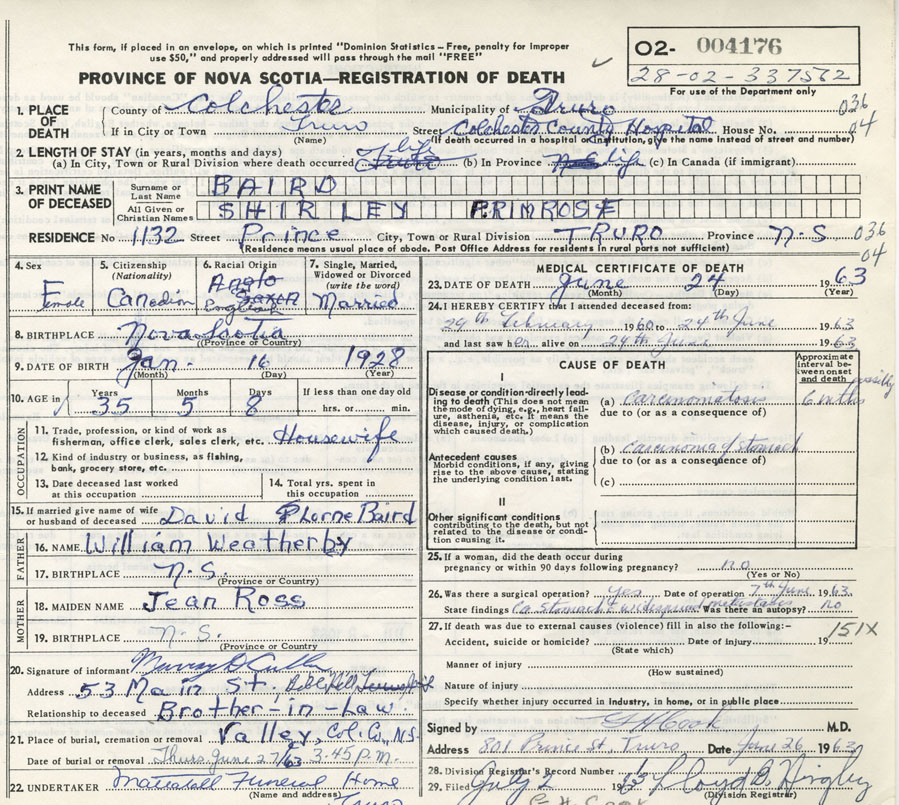 This form, if placed in an envelope, on which is printed "Dominion Statistics – Free, penalty for improper
use $50," and properly addressed will pass through the mail "FREE"
PROVINCE OF NOVA SCOTIA—REGISTRATION OF DEATH
02- 004176
28-02-337562
For use of the Department only
1. PLACE OF DEATH County of Colchester Municipality of Truro 036
If in City or Town Truro (Name) Street Colchester County Hospital House No. 04
(If death occurred in a hospital or institution, give the name instead of street and number)
2. LENGTH OF STAY (in years, months and days) life
(a) In City, Town or Rural Division where death occurred (b) In Province life (c) In Canada (if immigrant)
3. PRINT NAME OF DECEASED Surname or Last Name BAIRD
All Given or Christian Names SHIRLEY PRIMROSE
RESIDENCE No 1132 Street Prince City, Town or Rural Division TRURO Province N-S 036
(Residence means usual place of abode. Post Office Address for residents in rural parts not sufficient) 04
4. Sex Female
5. Citizenship (Nationality) Canadian
6. Racial Origin Anglo Saxon English
7. Single, Married, Widowed or Divorced (write the word) Married
8. BIRTHPLACE Nova Scotia
(Province or Country)
9. DATE OF BIRTH Jan. 16 1928
(Month) (Day) (Year)
10. AGE in Years 35 Months 5 Days 8 If less than one day old hrs. or min.
OCCUPATION
11. Trade, profession, or kind of work as fisherman, office clerk, sales clerk, etc. Housewife
12. Kind of industry or business, as fishing, bank, grocery store, etc.
13. Date deceased last worked at this occupation
14. Total yrs. spent in this occupation
15. If married give name of wife or husband of deceased David Lorne Baird
FATHER
16. NAME William Weatherby
17. BIRTHPLACE N.S.
(Province or Country)
MOTHER
18. MAIDEN NAME Jean Ross
19. BIRTHPLACE N.S.
(Province or Country)
20. Signature of informant Murray D
Address 53 Main St. Bible Hill
Relationship to deceased Brother-in-Law.
21. Place of burial, cremation or removal Valley, Col. Co., N.S.
Date of burial or removal Thurs. June 27/63 3:45 p.m.
22. UNDERTAKER Mattatall Funeral Home
(Name and address) Truro
MEDICAL CERTIFICATE OF DEATH
23. DATE OF DEATH June 24 1963
(Month) (Day) (Year)
24. I HEREBY CERTIFY that I attended deceased from:
29th February 1960 to 24th June 1963
and last saw her alive on 24th June 1963
CAUSE OF DEATH
Approximate interval between onset and death
I
Disease or condition directly leading to death (This does not mean the mode of dying, e.g., heart failure, asthenia, etc. It means the disease, injury, or complication which caused death.)
(a) Carcinomatosis possibly 6 mths
due to (or as a consequence of)
Antecedent causes
Morbid conditions, if any, giving rise to the above cause, stating the underlying condition last.
(b) carcinoma of stomach
due to (or as a consequence of)
(c)
II
Other significant conditions
contributing to the death, but not related to the disease or condition causing it.
25. If a woman, did the death occur during
pregnancy or within 90 days following pregnancy? no
(Yes or No)
26. Was there a surgical operation? Yes Date of operation 7th June 1963
State findings Ca. stomach & widespread metastates Was there an autopsy? no
27. If death was due to external causes (violence) fill in also the following:- 151X
Accident, suicide or homicide? Date of injury 19
(State which)
Manner of injury
(How sustained)
Nature of injury
Specify whether injury occurred in Industry, in home, or in public place
Signed by Cook M.D.
Address 801 Prince St, Truro Date June 26 1963
28. Division Registrar's Record Number
29. Filed July 2 1963 Lloyd
(Division Registrar)